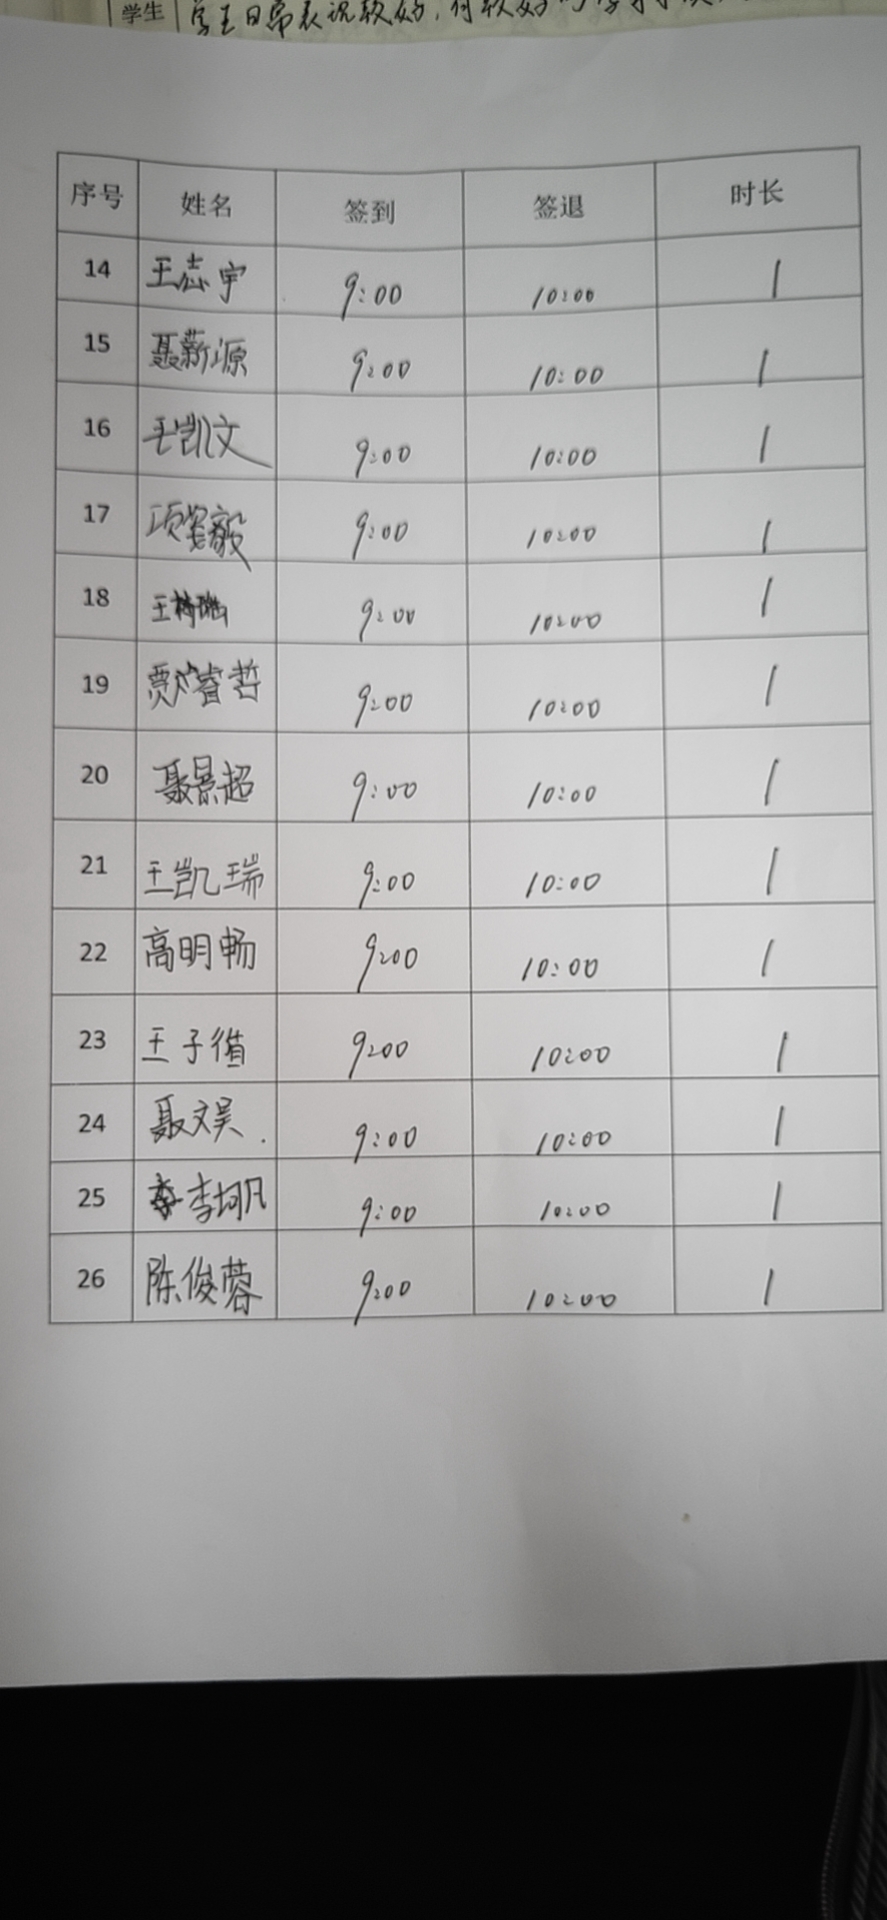 学生 学生日常表现较好,有较好的学习
序号 姓名 签到 签退 时长
14 王志宇 9:00 10:00 1
15 聂新源 9:00 10:00 1
16 王凯文 9:00 10:00 1
17 项 毅 9:00 10:00 1
18 王 9:00 10:00 1
19 贾睿哲 9:00 10:00 1
20 聂景超 9:00 10:00 1
21 王凯瑞 9:00 10:00 1
22 高明畅 9:00 10:00 1
23 王子 9:00 10:00 1
24 聂文昊 9:00 10:00 1
25 李珂凡 9:00 10:00 1
26 陈俊蓉 9:00 10:00 1